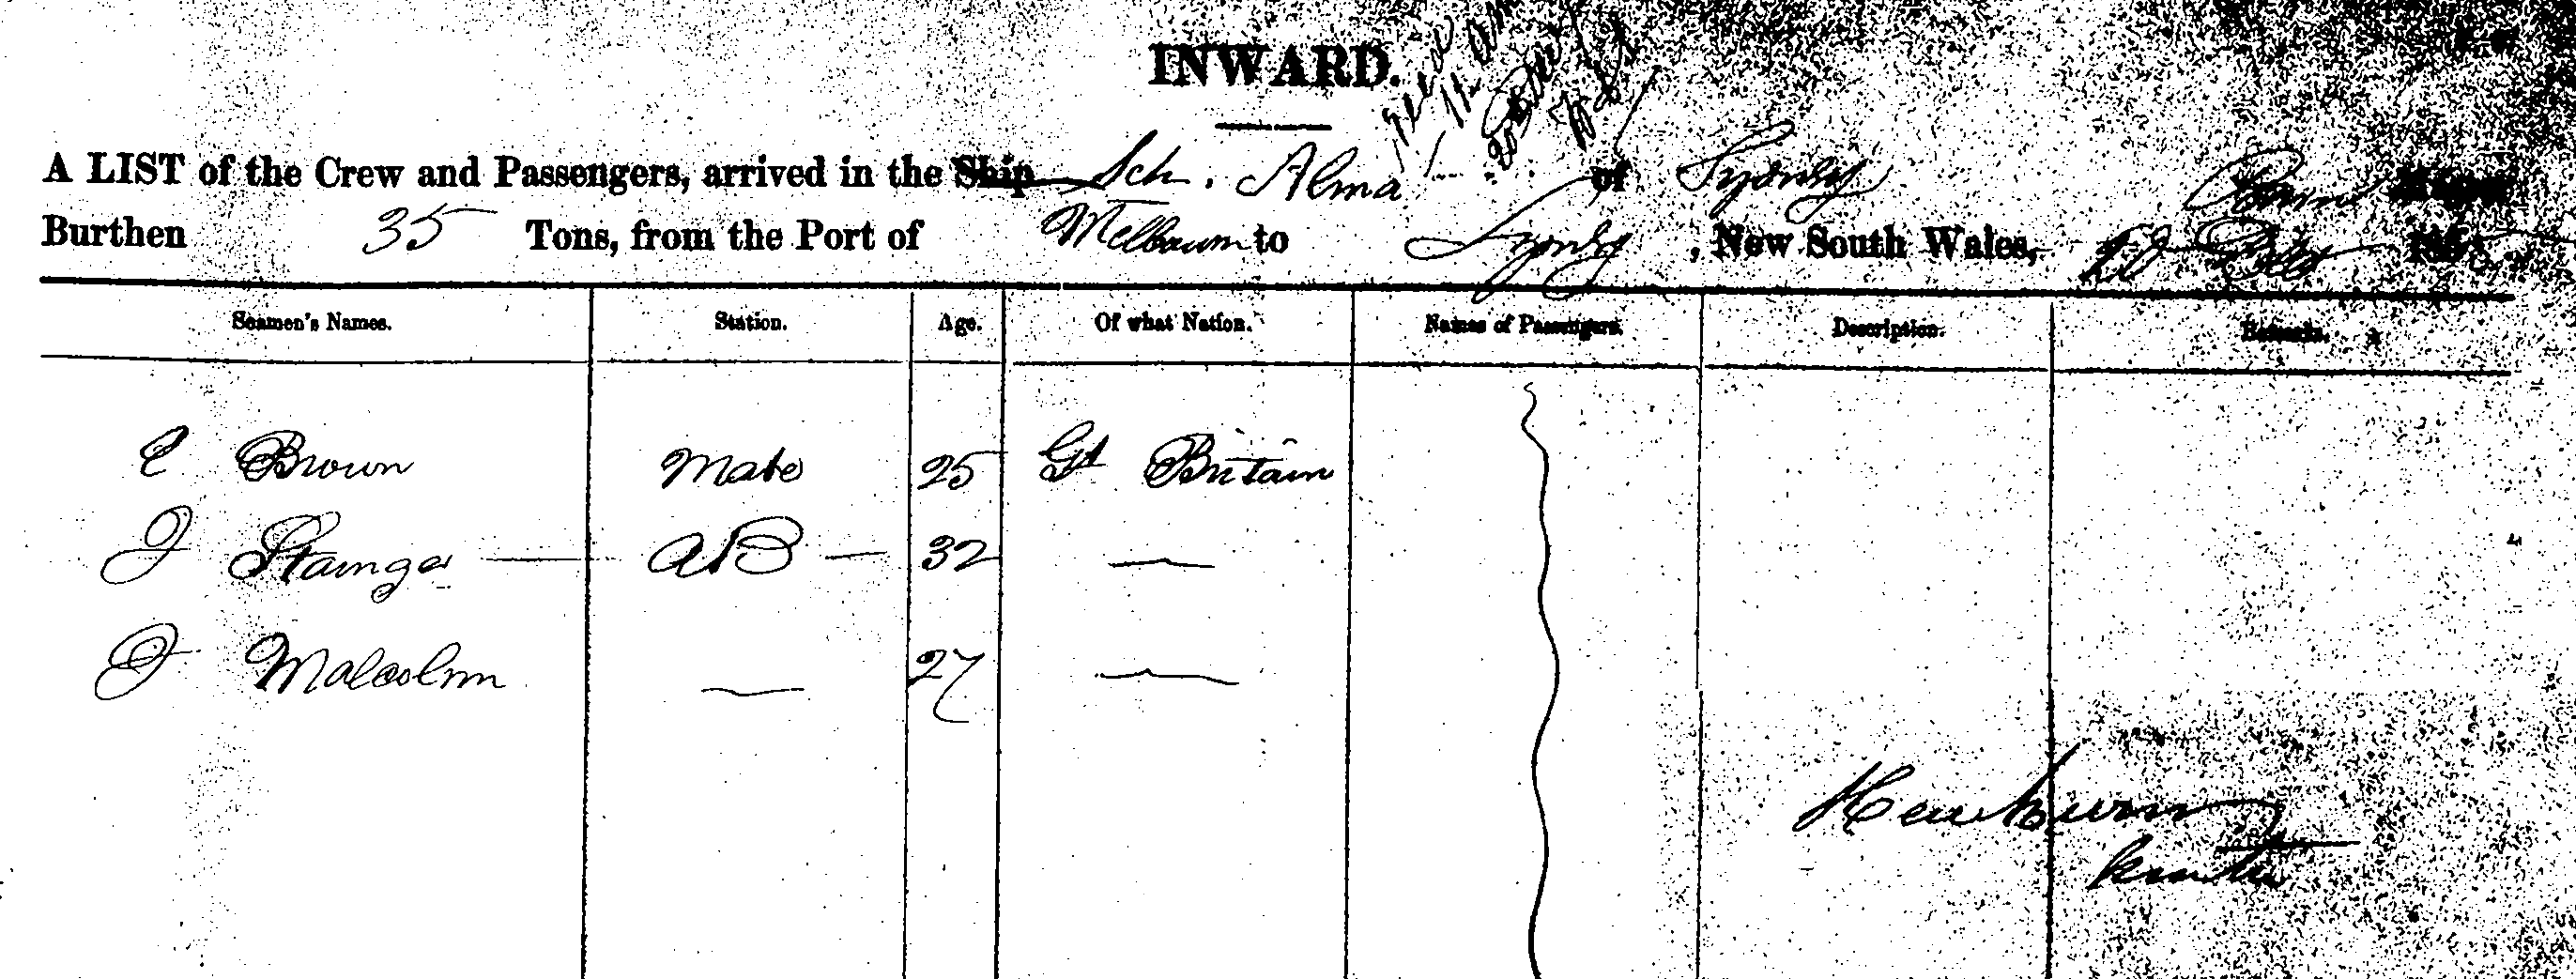 INWARD.
A LIST of the Crew and Passengers, arrived in the Ship Sch. Alma of Sydney Master
Burthen 35 Tons, from the Port of Melbourn to Sydney, New South Wales, 20 185
Seamen's Names. Station. Age. Of what Nation. Names of Passengers. Description. Remarks.
E Brown Mate 25 Gt Britain
J Stainger — AB — 32 —
J Malcolm — 27 —